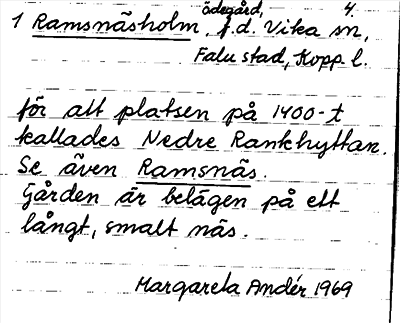 ödegård, 4.
1 Ramsnäsholm, f.d. Vika sn,
Falu stad, Kopp l.
för att platsen på 1400-t
kallades Nedre Rankhyttan.
Se även Ramsnäs.
Gården är belägen på ett
långt, smalt näs.
Margareta Andér 1969